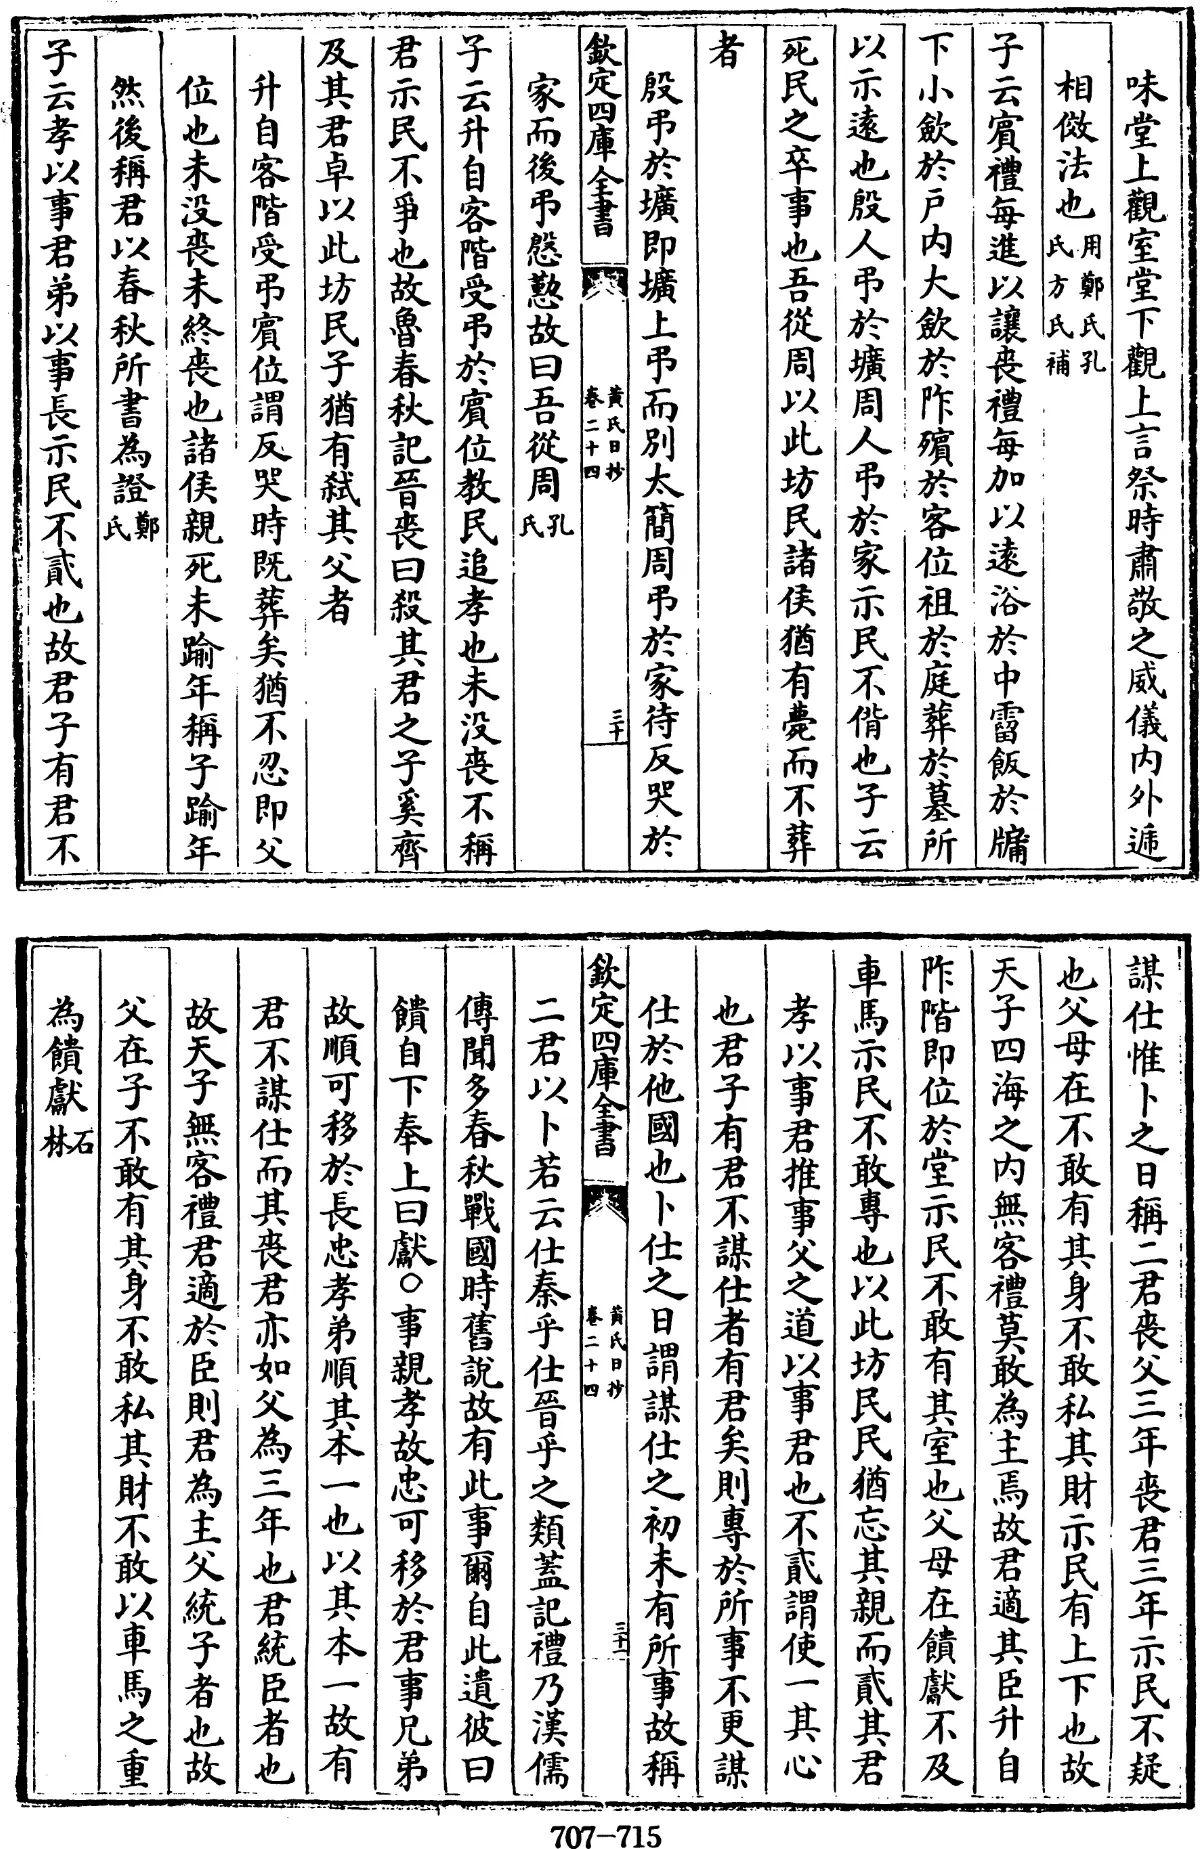 味堂上觀室堂下觀上言祭時肅敬之威儀内外遞
相倣法也用鄭氏孔氏方氏補
子云賓禮每進以讓喪禮每加以遠浴於中霤飯於牖
下小斂於戸内大斂於阼殯於客位祖於庭葬於墓所
以示遠也殷人弔於壙周人弔於家示民不偝也子云
死民之卒事也吾從周以此坊民諸侯猶有薨而不葬
者
殷弔於壙即壙上弔而別太簡周弔於家待反哭於
欽定四庫全書
黄氏日抄
卷二十四
三十
家而後弔慇懃故曰吾從周孔氏
子云升自客階受弔於賓位教民追孝也未没喪不稱
君示民不爭也故魯春秋記晉喪曰殺其君之子奚齊
及其君卓以此坊民子猶有弑其父者
升自客階受弔賓位謂反哭時既葬矣猶不忍即父
位也未没喪未終喪也諸侯親死未踰年稱子踰年
然後稱君以春秋所書為證鄭氏
子云孝以事君弟以事長示民不貳也故君子有君不
謀仕惟卜之日稱二君喪父三年喪君三年示民不疑
也父母在不敢有其身不敢私其財示民有上下也故
天子四海之内無客禮莫敢為主焉故君適其臣升自
阼階即位於堂示民不敢有其室也父母在饋獻不及
車馬示民不敢專也以此坊民民猶忘其親而貳其君
孝以事君推事父之道以事君也不貳謂使一其心
也君子有君不謀仕者有君矣則專於所事不更謀
仕於他國也卜仕之日謂謀仕之初未有所事故稱
欽定四庫全書
黄氏日抄
卷二十四
三十一
二君以卜若云仕秦乎仕晉乎之類蓋記禮乃漢儒
傳聞多春秋戰國時舊說故有此事爾自此遺彼曰
饋自下奉上曰獻○事親孝故忠可移於君事兄弟
故順可移於長忠孝弟順其本一也以其本一故有
君不謀仕而其喪君亦如父為三年也君統臣者也
故天子無客禮君適於臣則君為主父統子者也故
父在子不敢有其身不敢私其財不敢以車馬之重
為饋獻石林
707-715